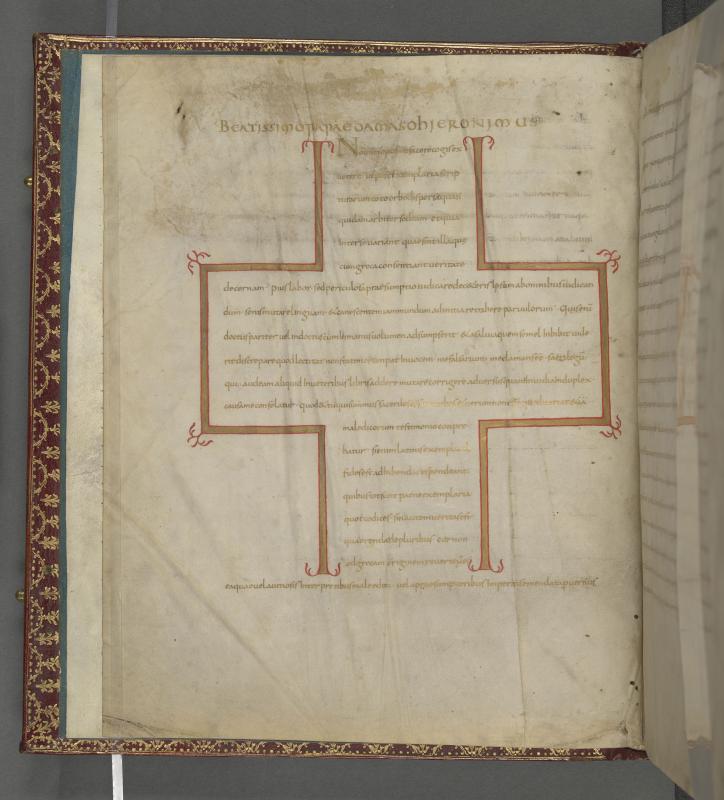 BEATISSIMO PAPAE DAMASO HIERONIMUS
Novum opus me facere cogis ex
veteri ut post exemplaria scrip
turarum toto orbe dispersa quasi
quidam arbiter sedeam et quia
inter se variant quae sint illa quae
cum greca consentiant veritate
decernam Pius labor sed periculosa praesumptio iudicare de ceteris ipsum ab omnibus iudican
dum senis mutare linguam et canescentem iam mundum ad initia retrahere parvulorum Quis enim
doctus pariter vel indoctus cum in manus volumen adsumpserit et a saliva quam semel inbibit vide
rit discrepare quod lectitat non statim erumpat in vocem me falsarium me clamans esse sacrilegum
qui audeam aliquid in veteribus libris addere mutare corrigere adversus quam invidiam duplex
causa me consolatur quod et tu qui summus sacerdos es fieri iubes et verum non esse quod variat etiam
maledicorum testimonio conpro
batur Si enim latinis exemplaribus
fides est adhibenda respondeant
quibus tot sunt paene exemplaria
quot codices Sin autem veritas est
quaerenda de pluribus cur non
ad grecam originem revertentes
ea quae vel a vitiosis interpretibus male edita vel a praesumptoribus inperitis emendata perversius